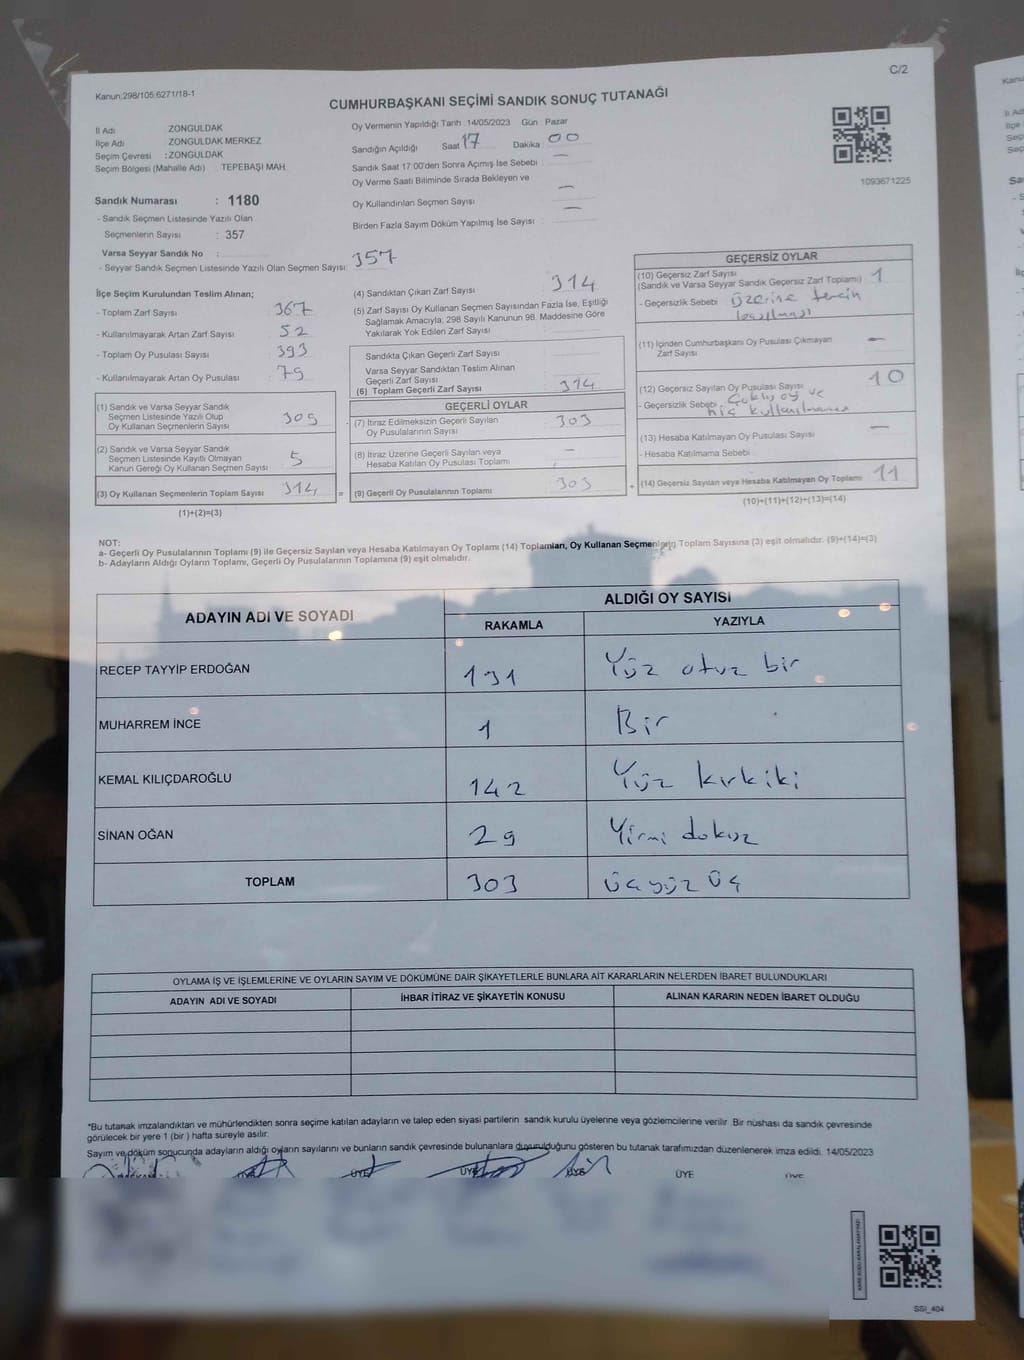 C/2
Kanun:298/105;6271/18-1
CUMHURBAŞKANI SEÇİMİ SANDIK SONUÇ TUTANAĞI
İl Adı ZONGULDAK
İlçe Adı ZONGULDAK MERKEZ
Seçim Çevresi :ZONGULDAK
Seçim Bölgesi (Mahalle Adı) : TEPEBAŞI MAH.
Oy Vermenin Yapıldığı Tarih :14/05/2023 Gün :Pazar
Sandığın Açıldığı Saat 17 Dakika : 00
Sandık Saat 17:00'den Sonra Açılmış İse Sebebi : —
Oy Verme Saati Bitiminde Sırada Bekleyen ve
Oy Kullandırılan Seçmen Sayısı : —
Birden Fazla Sayım Döküm Yapılmış İse Sayısı : —
1093671225
Sandık Numarası : 1180
- Sandık Seçmen Listesinde Yazılı Olan
Seçmenlerin Sayısı : 357
Varsa Seyyar Sandık No :
- Seyyar Sandık Seçmen Listesinde Yazılı Olan Seçmen Sayısı: 357
İlçe Seçim Kurulundan Teslim Alınan;
- Toplam Zarf Sayısı : 367
- Kullanılmayarak Artan Zarf Sayısı : 52
- Toplam Oy Pusulası Sayısı : 393
- Kullanılmayarak Artan Oy Pusulası : 79
(1) Sandık ve Varsa Seyyar Sandık
Seçmen Listesinde Yazılı Olup
Oy Kullanan Seçmenlerin Sayısı : 309
(2) Sandık ve Varsa Seyyar Sandık
Seçmen Listesinde Kayıtlı Olmayan
Kanun Gereği Oy Kullanan Seçmen Sayısı : 5
(3) Oy Kullanan Seçmenlerin Toplam Sayısı : 314
(1)+(2)=(3)
(4) Sandıktan Çıkan Zarf Sayısı : 314
(5) Zarf Sayısı Oy Kullanan Seçmen Sayısından Fazla İse, Eşitliği
Sağlamak Amacıyla; 298 Sayılı Kanunun 98. Maddesine Göre
Yakılarak Yok Edilen Zarf Sayısı :
Sandıkta Çıkan Geçerli Zarf Sayısı :
Varsa Seyyar Sandıktan Teslim Alınan
Geçerli Zarf Sayısı :
(6) Toplam Geçerli Zarf Sayısı : 314
GEÇERLİ OYLAR
(7) İtiraz Edilmeksizin Geçerli Sayılan
Oy Pusulalarının Sayısı : 303
(8) İtiraz Üzerine Geçerli Sayılan veya
Hesaba Katılan Oy Pusulası Toplamı : —
= (9) Geçerli Oy Pusulalarının Toplamı : 303
GEÇERSİZ OYLAR
(10) Geçersiz Zarf Sayısı
(Sandık ve Varsa Seyyar Sandık Geçersiz Zarf Toplamı) : 1
- Geçersizlik Sebebi : üzerine tercih
(11) İçinden Cumhurbaşkanı Oy Pusulası Çıkmayan
Zarf Sayısı : —
(12) Geçersiz Sayılan Oy Pusulası Sayısı : 10
- Geçersizlik Sebebi : Çoklu oy ve
hiç kullanılmaması
(13) Hesaba Katılmayan Oy Pusulası Sayısı : —
- Hesaba Katılmama Sebebi :
+ (14) Geçersiz Sayılan veya Hesaba Katılmayan Oy Toplamı : 11
(10)+(11)+(12)+(13)=(14)
NOT:
a- Geçerli Oy Pusulalarının Toplamı (9) ile Geçersiz Sayılan veya Hesaba Katılmayan Oy Toplamı (14) Toplamları, Oy Kullanan Seçmenlerin Toplam Sayısına (3) eşit olmalıdır. (9)+(14)=(3)
b- Adayların Aldığı Oyların Toplamı, Geçerli Oy Pusulalarının Toplamına (9) eşit olmalıdır.
ADAYIN ADI VE SOYADI ALDIĞI OY SAYISI
RAKAMLA YAZIYLA
RECEP TAYYİP ERDOĞAN 131 Yüz otuz bir
MUHARREM İNCE 1 Bir
KEMAL KILIÇDAROĞLU 142 Yüz kırkiki
SİNAN OĞAN 29 Yirmi dokuz
TOPLAM 303 üçyüz üç
OYLAMA İŞ VE İŞLEMLERİNE VE OYLARIN SAYIM VE DÖKÜMÜNE DAİR ŞİKAYETLERLE BUNLARA AİT KARARLARIN NELERDEN İBARET BULUNDUKLARI
ADAYIN ADI VE SOYADI İHBAR İTİRAZ VE ŞİKAYETİN KONUSU ALINAN KARARIN NEDEN İBARET OLDUĞU
*Bu tutanak imzalandıktan ve mühürlendikten sonra seçime katılan adayların ve talep eden siyasi partilerin sandık kurulu üyelerine veya gözlemcilerine verilir. Bir nüshası da sandık çevresinde
görülecek bir yere 1 (bir ) hafta süreyle asılır.
Sayım ve döküm sonucunda adayların aldığı oyların sayılarını ve bunların sandık çevresinde bulunanlara duyurulduğunu gösteren bu tutanak tarafımızdan düzenlenerek imza edildi. 14/05/2023
ÜYE ÜYE ÜYE ÜYE ÜYE
SSI_404